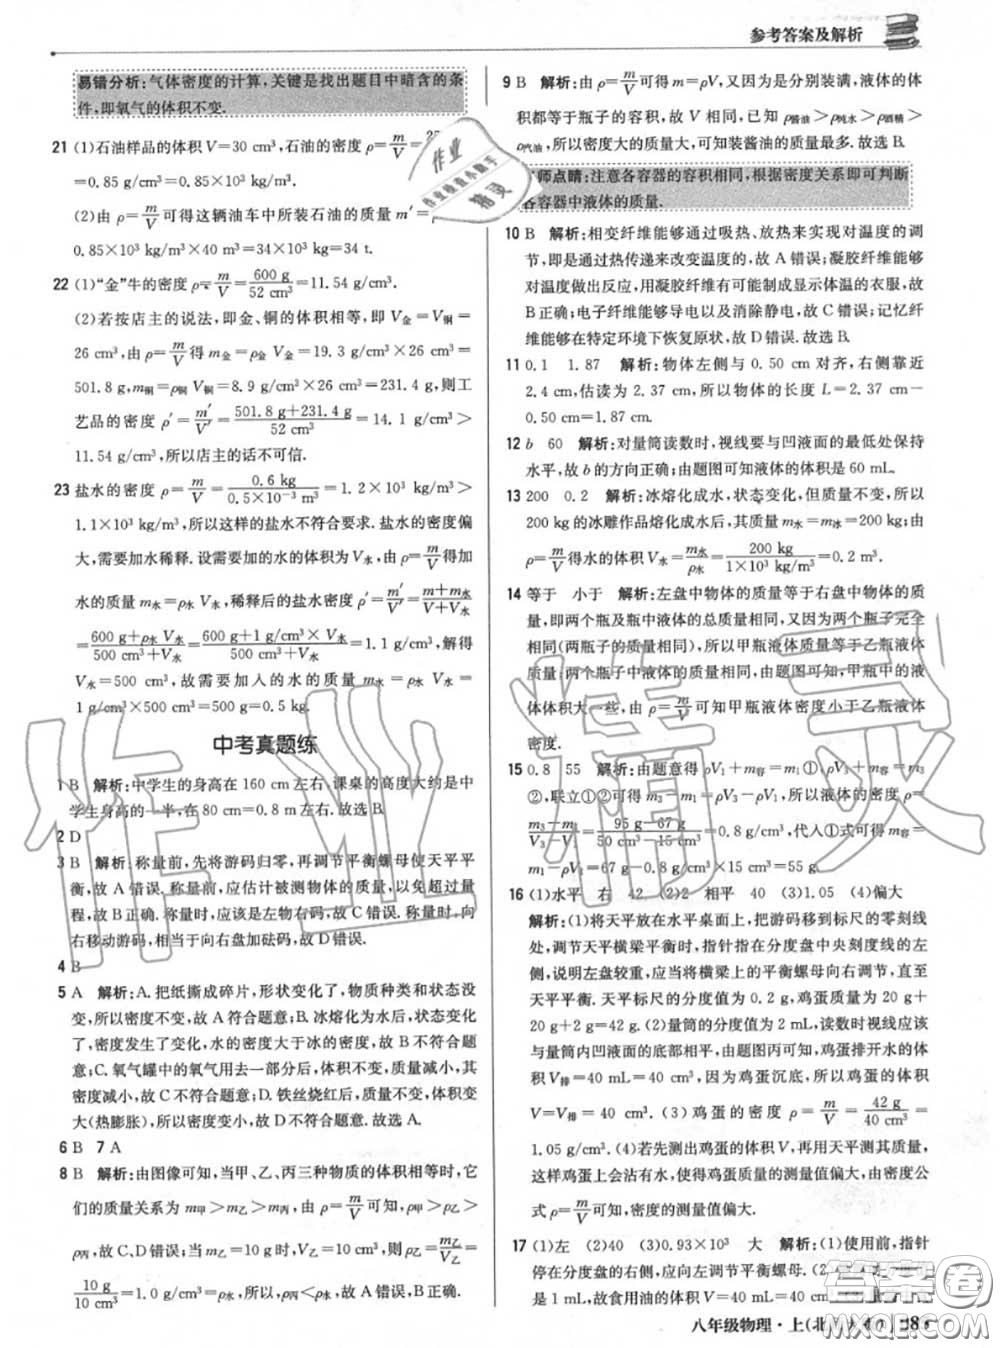 参考答案及解析
易错分析:气体密度的计算,关键是找出题目中暗含的条
件,即氧气的体积不变.
21 (1)石油样品的体积V=30 cm³,石油的密度ρ=m/V=
=0.85 g/cm³=0.85×10³ kg/m³.
(2)由ρ=m/V可得这辆油车中所装石油的质量m′=
0.85×10³ kg/m³×40 m³=34×10³ kg=34 t.
22 (1)“金”牛的密度ρ=m/V=600 g/52 cm³=11.54 g/cm³.
(2)若按店主的说法,即金、铜的体积相等,V金=V铜=
26 cm³,由ρ=m/V得m金=ρ金V金=19.3 g/cm³×26 cm³=
501.8 g,m铜=ρ铜V铜=8.9 g/cm³×26 cm³=231.4 g,则工
艺品的密度ρ′=m′/V′=(501.8 g+231.4 g)/52 cm³=14.1 g/cm³>
11.54 g/cm³,所以店主的话不可信.
23 盐水的密度ρ=m/V=0.6 kg/(0.5×10⁻³ m³)=1.2×10³ kg/m³>
1.1×10³ kg/m³,所以这样的盐水不符合要求.盐水的密度偏
大,需要加水稀释.设需要加的水的体积为V水,由ρ=m/V得加
水的质量m水=ρ水V水,稀释后的盐水密度ρ′=m′/V′=(m+m水)/(V+V水)
=(600 g+ρ水V水)/(500 cm³+V水)=(600 g+1 g/cm³×V水)/(500 cm³+V水)=1.1 g/cm³,解得
V水=500 cm³,故需要加入的水的质量m水=ρ水V水=
1 g/cm³×500 cm³=500 g=0.5 kg.
中考真题练
1 B 解析:中学生的身高在160 cm左右.课桌的高度大约是中
学生身高的一半,在80 cm=0.8 m左右.故选B.
2 D
3 B 解析:称量前,先将游码归零,再调节平衡螺母使天平平
衡,故A错误.称量前,应估计被测物体的质量,以免超过最大
量程,故B正确.称量时,应该是左物右码,故C错误.称量时,向
右移动游码,相当于向右盘加砝码,故D错误.
4 B
5 A 解析:A.把纸撕成碎片,形状变化了,物质种类和状态没
变,所以密度不变,故A符合题意;B.冰熔化为水后,状态变化
了,密度发生了变化,水的密度大于冰的密度,故B不符合题
意;C.氧气罐中的氧气用去一部分后,体积不变,质量减小,其
密度减小,故C不符合题意;D.铁丝烧红后,质量不变,体积变
大(热膨胀),所以密度变小,故D不符合题意.故选A.
6 B 7 A
8 B 解析:由图像可知,当甲、乙、丙三种物质的体积相等时,它
们的质量关系为m甲>m乙>m丙,由ρ=m/V可知,ρ甲>ρ乙>
ρ丙,故C、D错误;当m乙=10 g时,V乙=10 cm³,ρ乙=m乙/V乙=
10 g/10 cm³=1.0 g/cm³=ρ水,所以ρ丙<ρ水,故A错误,B正确.
9 B 解析:由ρ=m/V可得m=ρV,又因为都装满水,液体的体
积都等于瓶子的容积,故V相同,已知ρ酱油>ρ纯水>ρ酒精>
ρ汽油,所以密度大的质量大,可知装酱油的质量最多.故选B.
师点睛:注意各容器的容积相同,根据密度关系即可判断
各容器中液体的质量.
10 B 解析:相变纤维能够通过吸热、放热来实现对温度的调
节,即通过热传递来改变温度的,故A错误;凝胶纤维能够
对温度做出反应,用凝胶纤维有可能制成显示体温的衣服,故
B正确;电子纤维能够导电以及消除静电,故C错误;记忆纤
维能够在特定环境下恢复原状,故D错误.故选B.
11 0.1 1.87 解析:物体左侧与0.50 cm对齐,右侧靠近
2.4 cm,估读为2.37 cm,所以物体的长度L=2.37 cm-
0.50 cm=1.87 cm.
12 b 60 解析:对量筒读数时,视线要与凹液面的最低处保持
水平,故b的方向正确;由题图可知液体的体积是60 mL.
13 200 0.2 解析:冰熔化成水,状态变化,但质量不变,所以
200 kg的冰雕作品熔化成水后,其质量m水=m冰=200 kg;
由ρ=m/V得水的体积V水=m水/ρ水=200 kg/(1×10³ kg/m³)=0.2 m³.
14 等于 小于 解析:左盘中物体的质量等于右盘中物体的质
量,即两个瓶及瓶中液体的总质量相同,又因为两个瓶子完全
相同(两瓶子的质量相同),所以甲瓶液体质量等于乙瓶液体
质量;两瓶子中液体的质量相同,由题图可知,甲瓶中的液
体体积大一些,由ρ=m/V可知甲瓶液体密度小于乙瓶液体
密度.
15 0.8 55 解析:由题意得ρV₁+m容=m₁①,ρV₃+m容=m₃
②,联立①②可得m₃-m₁=ρV₃-ρV₁,所以液体的密度ρ=
(m₃-m₁)/(V₃-V₁)=(95 g-67 g)/(50 cm³-15 cm³)=0.8 g/cm³,代入①式可得m容=
m₁-ρV₁=67 g-0.8 g/cm³×15 cm³=55 g.
16 (1)水平 右 42 (2)2 相平 40 (3)1.05 (4)偏大
解析:(1)将天平放在水平桌面上,把游码移到标尺的零刻线
处,调节天平横梁平衡时,指针指在分度盘中央刻度线的左
侧,说明左盘较重,应将横梁上的平衡螺母向右调节,直到
天平平衡.天平标尺的分度值为0.2 g,鸡蛋质量为20 g+
20 g+2 g=42 g.(2)量筒的分度值为2 mL,读数时视线应与
量筒内凹液面的底部相平,由题图丙可知,鸡蛋排开水的体
积V排=40 mL=40 cm³.因为鸡蛋沉底,所以鸡蛋的体积
V=V排=40 cm³.(3)鸡蛋的密度ρ=m/V=42 g/40 cm³=
1.05 g/cm³.(4)若先测出鸡蛋的体积V,再用天平测其质量,
这时鸡蛋上会沾有水,使得鸡蛋质量的测量值偏大,根据公
式ρ=m/V可知,密度的测量值偏大.
17 (1)左 (2)40 (3)0.93×10³ 大 解析:(1)使用前,指针
停在分度盘的右侧,应向左调节平衡螺母.(2)
值为 故食用油的体积V=40 mL=40 cm³.
八年级物理·上(北